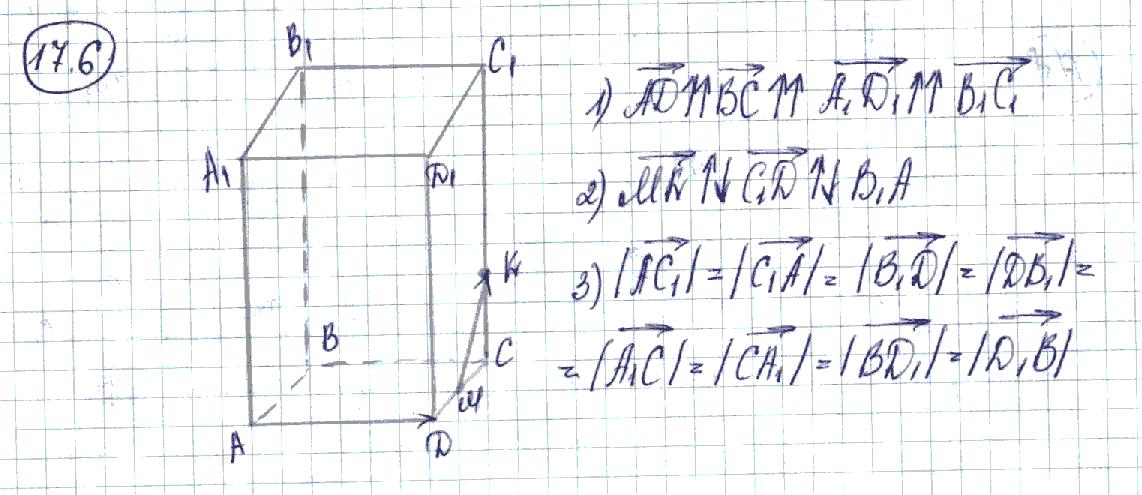 17.6
B₁
C₁
A₁
D₁
K
B
C
M
A
D
1) AD ↑↑ BC ↑↑ A₁D₁ ↑↑ B₁C₁
2) MK ↑↓ C₁D ↑↓ B₁A
3) |AC₁| = |C₁A| = |B₁D| = |DB₁| =
= |A₁C| = |CA₁| = |BD₁| = |D₁B|